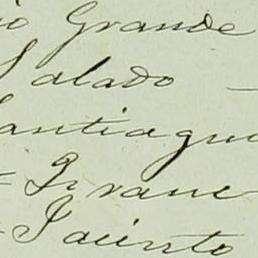 io Grande
Salado —
Santiague
= Livane
- Jacinto